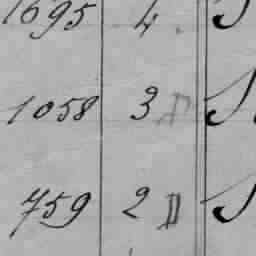 1695 4 S
1058 3 S
759 2 II S